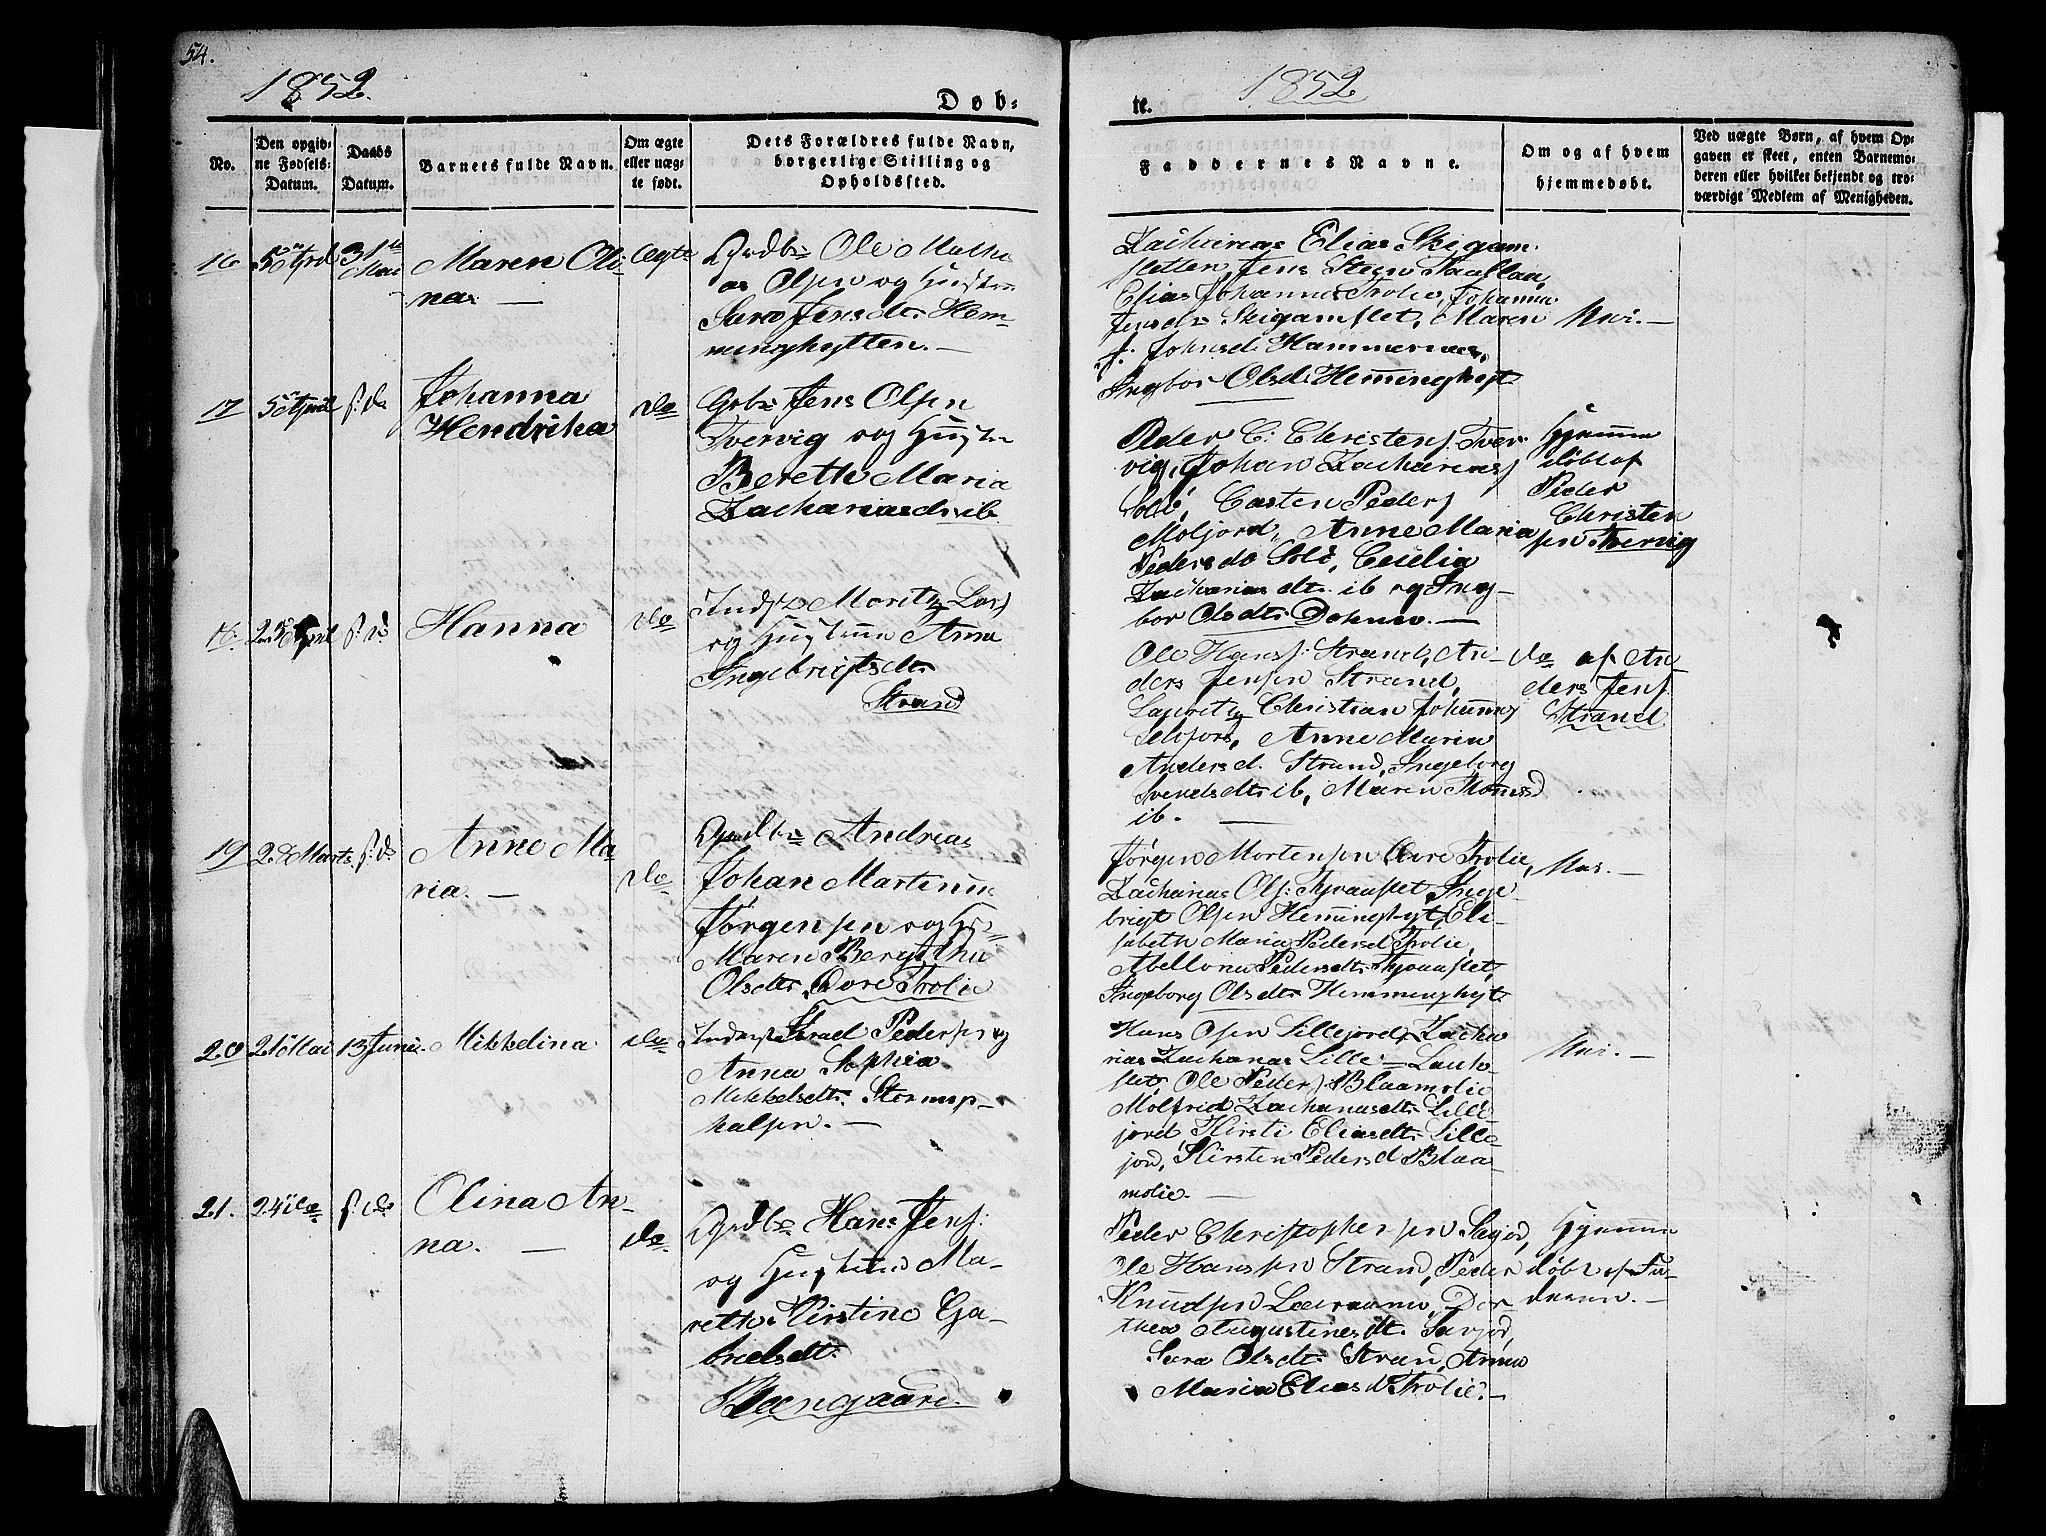 54.
1852.
Døb-
No.
Den opgiv-
ne Fødsels-
Datum.
Daabs
Datum.
Barnets fulde Navn.
Om ægte
eller uæg-
te født.
Dets Forældres fulde Navn,
borgerlige Stilling og
Opholdssted.
16
5 April
31te
Mai
Maren Oli
na. —
Ægte
Ole Mathi
as Olsen og Hustru
Sara Jensdtr Hem-
minghytten. —
17
5 April
s. d.
Johanna
Hendrika
do
Gbr Jens Olsen
Tvervig og Hustru
Bereth Maria
Zachariasdr ib
April
s. d.
Hanna
do
Inds Moritz Lars
og Hustrue Anna
Ingebrigtsdtr
Strand
19
28 Marts
s. d.
Anne Ma
ria. —
do
Andreas
Johan Martinus
Jørgensen og H
Maren Bergitha
Olsdtr Øvre Trolie
20
21 Mai
13 Juni
Mikkelina
do
Inders Israel Pedersen og
Anna Sophia
Mikkelsdtr. Stormsp-
halsen. —
21.
24 do
s. d.
Olina An-
na. —
do
Hans Jens.
og Hustrue Ma-
rethe Kirstine Ga-
brielsdt.
Beengaard.
1852
te.
Faddernes Navne.
Om og af hvem
hjemmedøbt.
Ved uægte Børn, af hvem Op-
gaven er skeet, enten Barnemo-
deren eller hvilket bekjendt og tro-
værdigt Medlem af Menigheden.
Zacharias Elias Skigam-
sletten, Jens Steen
Elias Johannes Trolie, Johanna
Jensdr Skigamslet, Maren
J. Johnsd Hammernes,
Ingbor Olsd. Hemminghyt
Nei. —
Peder C. Christens. Tver-
vig, Johan Zacharias
Solø, Casten Peders
Moljord, Anne Maria
Pedersd Solø, Cecilia
Zachariasdtr. ib og Ing-
bor Olsdtr —
Hjemme
døbt af
Peder
Christen
sen Tvervig
Ole Hans. Strand, An-
ders Jensen Strand,
Christian Johannes
Anne Maria
Andersd. Strand, Ingeborg
Svendsdtr ib, Maren
ib. —
do af An-
ders Jens.
Strand.
Jørgen Mortensen Øvre Trolie,
Zacharias Ols. Inge
brigt Olsen Hemminghyt, Eli-
sabeth Maria Pedersd Trolie,
Abellona Pedersdtr
Ingeborg Olsdtr Hemminghyt
Nei. —
Hans Olsen Lillejord, Zacha
rias Zacharias Lille-
slet, Ole Peders Blaamolie
Molfrid Zachariasdtr. Lille
jord, Kirsti Eliasdtr. Lille
jord, Kirsten Pedersd Blaa
molie. —
Nei. —
Peder Christophersen
Ole Hansen Strand, Peder
Knudsen Dor
thea Augustinesdt.
Sara Olsdtr Strand, Anna
Maria Eliasd Trolie. —
Hjemme
døbt af Fa-
deren. —